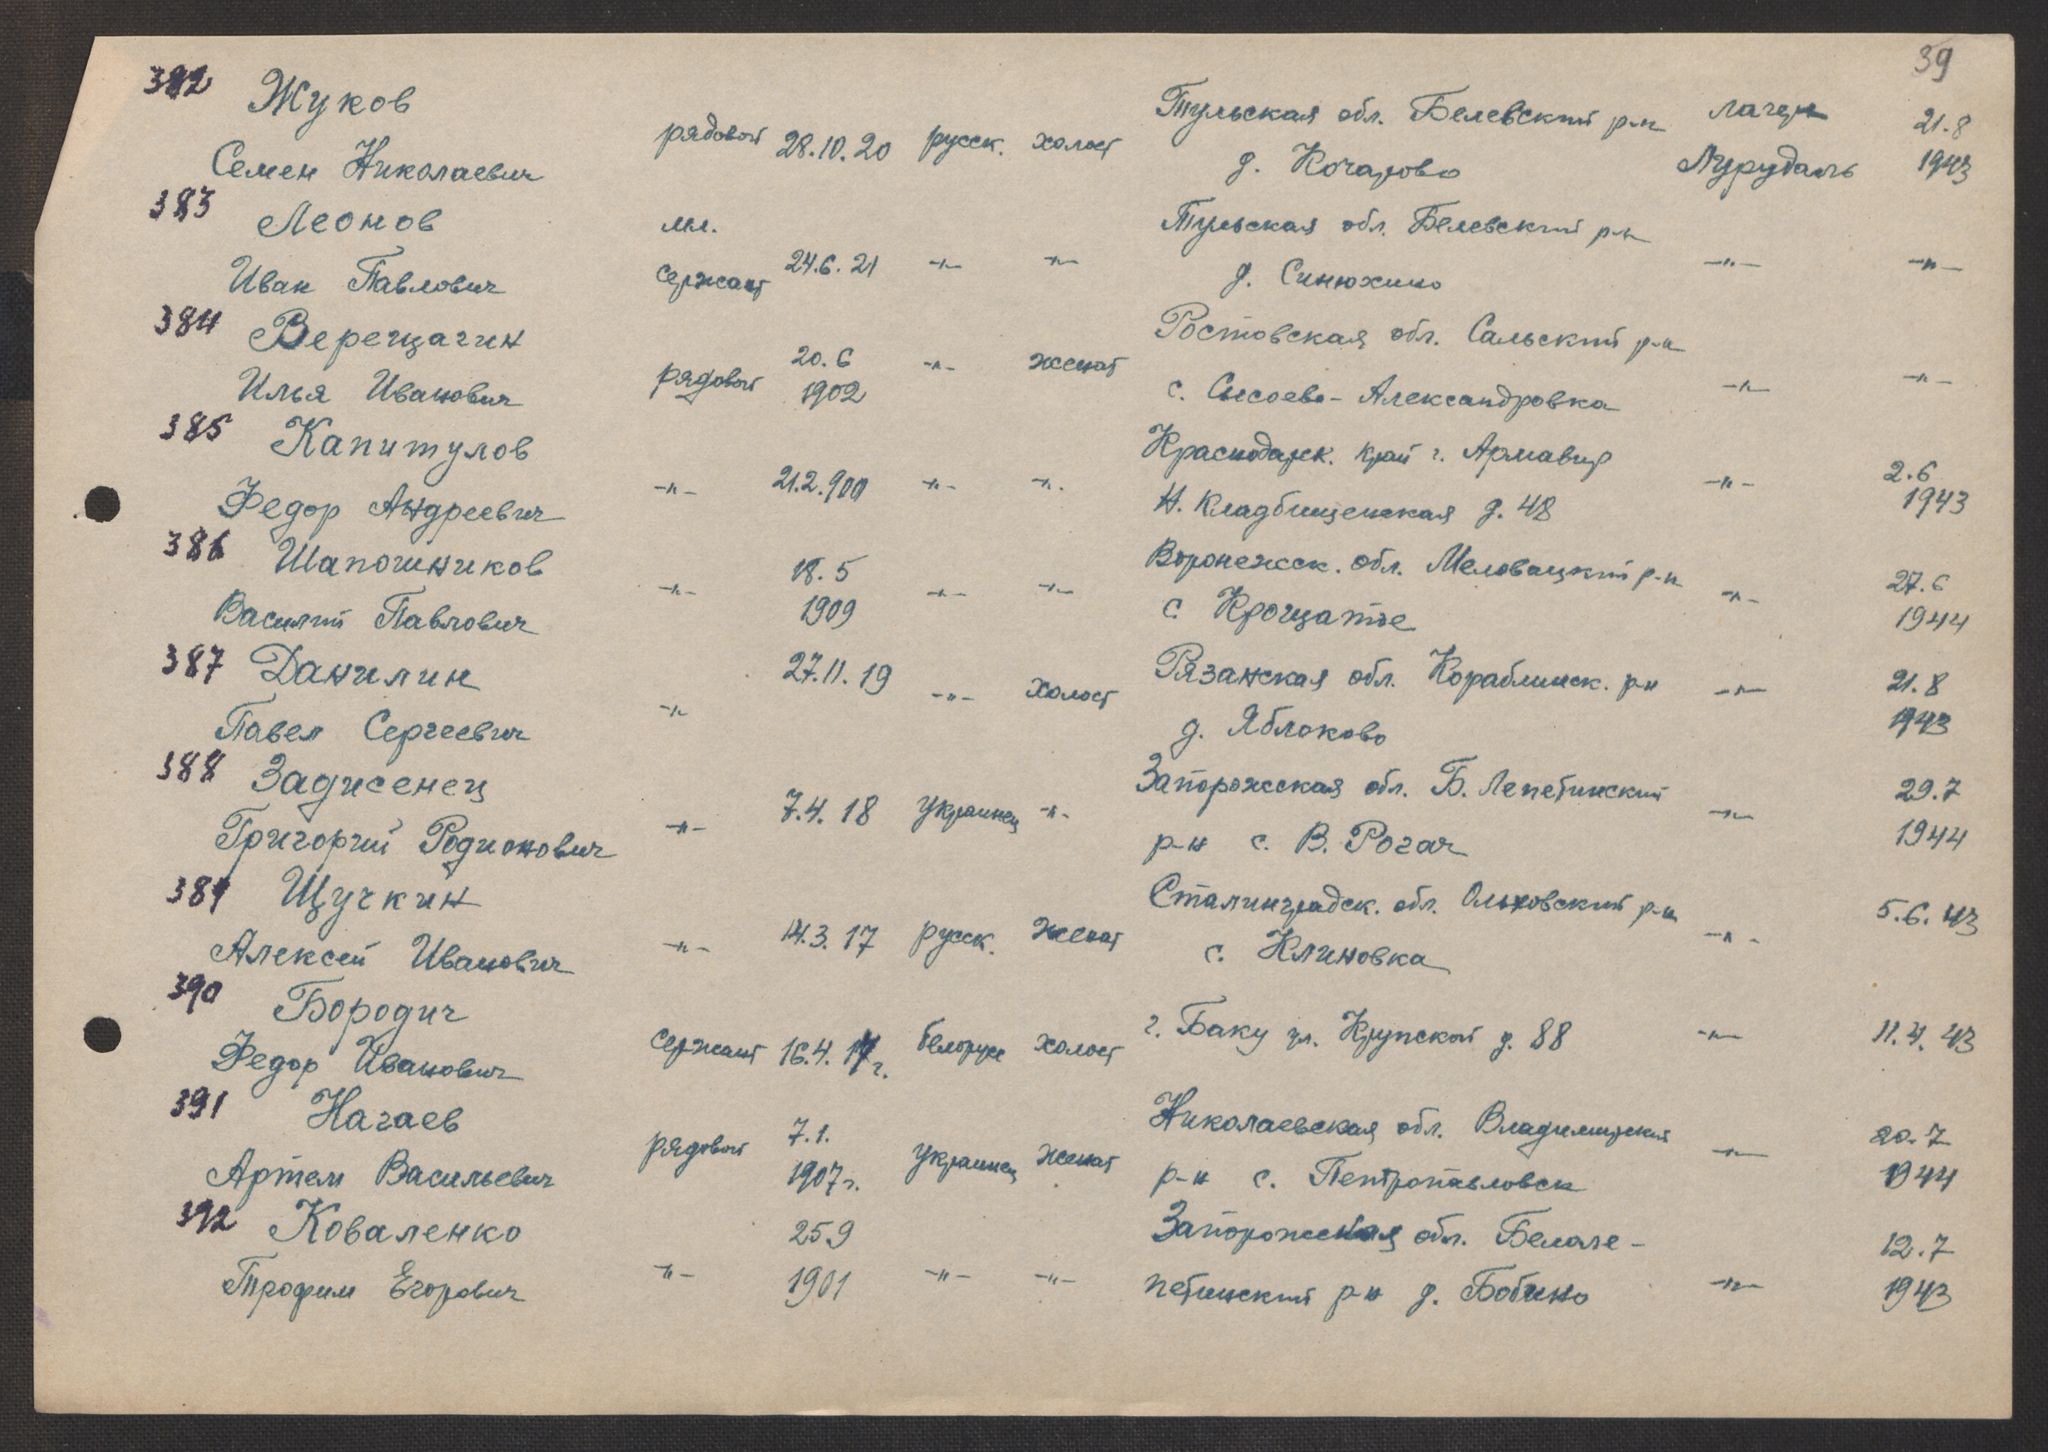 39
382 Жуков
Семен Николаевич рядовой 28.10.20 русск. холост Тульская обл. Белевский р-н д. Кочарово лагерь 21.8 1943
383 Леонов
Иван Павлович мл. сержант 24.6.21 -"- -"- Тульская обл. Белевский р-н д. Синюхино -"- -"-
384 Верещагин
Илья Иванович рядовой 20.6 1902 -"- женат Ростовская обл. Сальский р-н с. Сысоево-Александровка -"- -"-
385 Капитулов
Федор Андреевич -"- 21.2.900 -"- -"- Краснодарск. край г. Армавир Н. Кладбищенская д. 48 -"- 2.6 1943
386 Шапошников
Василий Павлович -"- 18.5 1909 -"- -"- Воронежск. обл. Меловацкий р-н с. Крощатое -"- 27.6 1944
387 Данилин
Павел Сергеевич -"- 27.11.19 -"- холост Рязанская обл. Кораблинск. р-н д. Яблоково -"- 21.8 1943
388 Задисенец
Григорий Родионович -"- 7.4.18 украинец -"- Запорожская обл. Б. Лепетинский р-н с. В. Рогач -"- 29.7 1944
389 Щучкин
Алексей Иванович -"- 14.3.17 русск. женат Сталинградск. обл. Ольховский р-н с. Клиновка -"- 5.6.43
390 Бородич
Федор Иванович сержант 16.4.17г. белорусс холост г. Баку ул. Крупской д. 88 -"- 11.4.43
391 Нагаев
Артем Васильевич рядовой 7.1. 1907г. украинец женат Николаевская обл. Владимирский р-н с. Пентропавловск -"- 20.7 1944
392 Коваленко
Трофим Егорович -"- 25.9 1901 -"- -"- Запорожская обл. Белале- петинский р-н д. Бобино -"- 12.7 1943